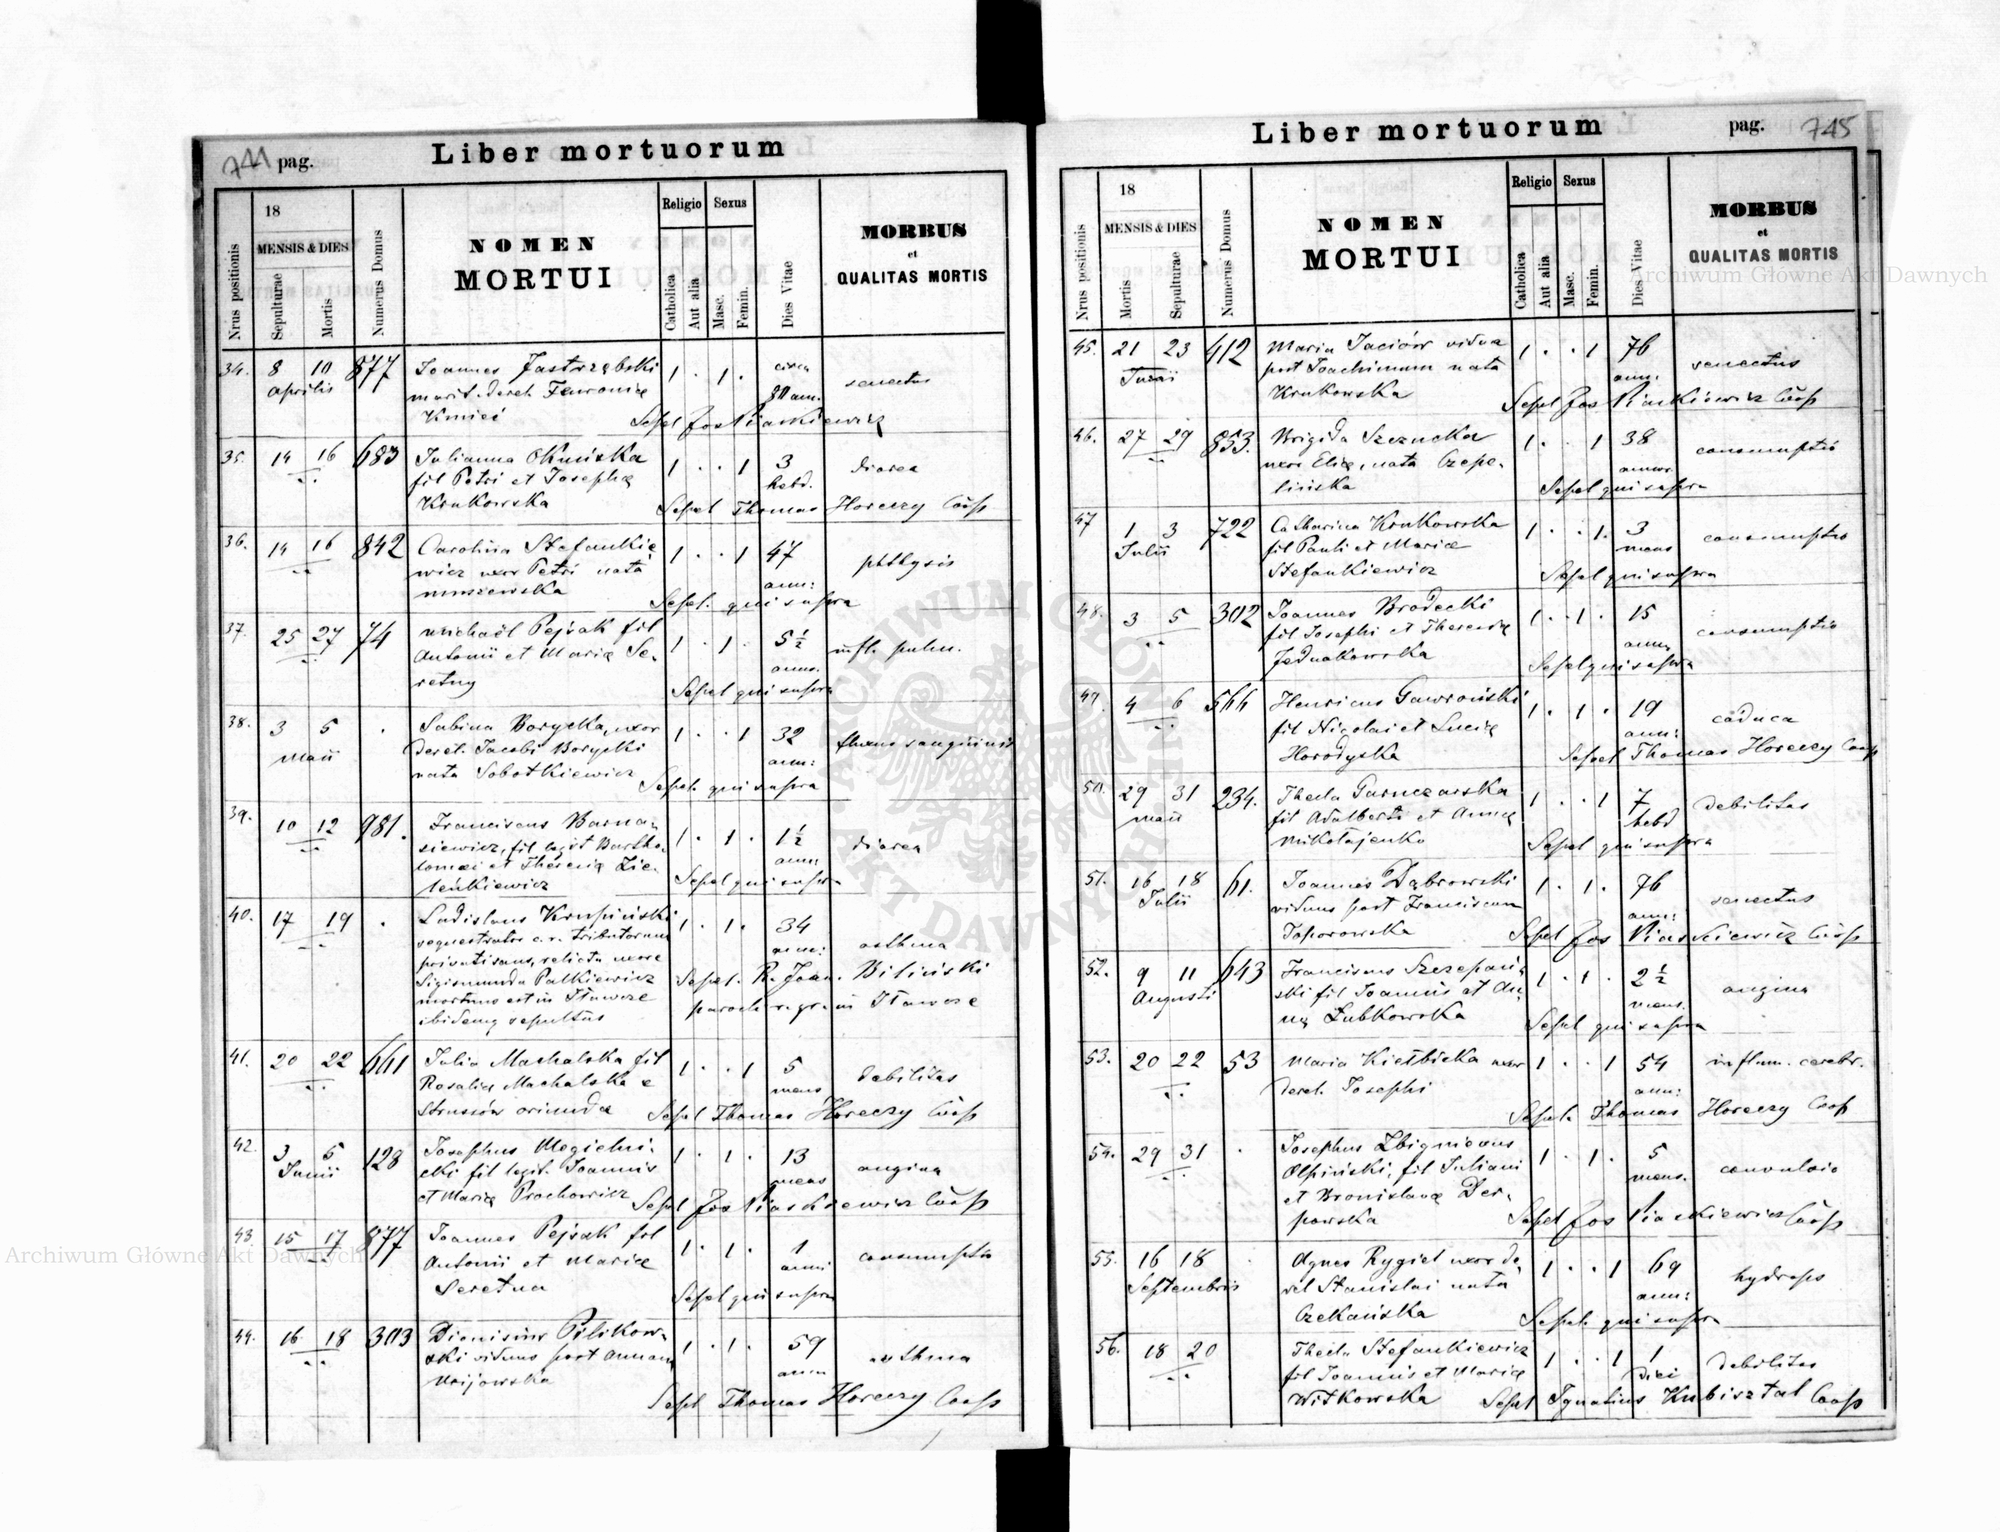 744 pag.
Liber mortuorum
Nrus positionis
18
MENSIS & DIES
Sepulturae
Mortis
Numerus Domus
NOMEN
MORTUI
Religio
Catholica
Aut alia
Sexus
Masc.
Femin.
Dies Vitae
MORBUS
et
QUALITAS MORTIS
34. 8 10 877 Joannes Jastrzębski 1 . 1 . circa senectus
Aprilis marit. derel. Fevronię 80 ann.
Kmieć Sepel Jos Piaskiewicz
35. 14 16 683 Julianna Oknińska 1 . . 1 3 diarea
fil Petri et Josephę hebd.
Krukowska Sepel Thomas Horeczy Coop
36. 14 16 842 Carolina Stefankie 1 . . 1 47 phthysis
wicz uxor Petri nata ann:
Sepel. qui supra
37. 25 27 74 Michaël Pejsak fil 1 . 1 . 5 1/2 infl. pulm.
Antonii et Marię Se- anno.
retny Sepel qui supra
38. 3 5 . Sabina Borycka, uxor 1 . . 1 32 fluxus sanguinis
Maii derel. Jacobi Borycki ann:
nata Sobotkiewicz Sepel. qui supra
39. 10 12 981. Franciscus Barna- 1 . 1 . 1 1/2 diarea
siewicz, fil legit Bartho- ann:
lomæi et Theresię Zie- Sepel qui supra
leńkiewicz
40. 17 19 . Ladislaus Krupiński 1 . 1 . 34 asthma
sequestrator c. r. tributorum ann:
privatisans, relicta uxore Sepel. R. Joan. Biliński
Sigismunda Palkiewicz paroch r. gr. in Tławcze
mortuus est in Tławcze
ibidemq sepultus
41. 20 22 661 Julia Machalska fil 1 . . 1 5 debilitas
Rosalię Machalska e mens
Strussów oriunda Sepel Thomas Horeczy Coop
42. 3 5 128 Josephus Megielni- 1 . 1 . 13 angina
Junii cki fil legit. Joannis mens
et Marię Prochowicz Sepel Jos Piaskiewicz Coop
43. 15 17 877 Joannes Pejsak fil 1 . 1 . 1 consumptio
Antonii et Marię anni
Seretna Sepel qui supra
44. 16 18 303 Dionisius Pilikow- 1 . 1 . 59 asthma
ski viduus post Annam ann
Sepel Thomas Horeczy Coop
Liber mortuorum
pag. 745
Nrus positionis
18
MENSIS & DIES
Mortis
Sepulturae
Numerus Domus
NOMEN
MORTUI
Religio
Catholica
Aut alia
Sexus
Masc.
Femin.
Dies Vitae
MORBUS
et
QUALITAS MORTIS
45. 21 23 412 Maria Jaciów vidua 1 . . 1 76 senectus
Junii post Joachimum nata ann.
Krukowska Sepel Jos Piaskiewicz Coop
46. 27 29 853. Brigida Szczucka 1 . . 1 38 consumptio
uxor Elię, nata Czepe- annor.
lińska Sepel qui supra
47 1 3 722 Catharina Krukowska 1 . . 1. 3 consumptio
Julii fil Pauli et Marię mens
Stefankiewicz Sepel qui supra
48. 3 5 302 Joannes Brodecki 1 . 1 . 15 consumptio
fil Josephi et Theresię ann.
Jednakowska Sepel qui supra
49. 4 6 566 Henricus Gawroński 1 . 1 . 19 caduca
fil Nicolai et Lucię ann:
Horodyska Sepel Thomas Horeczy Coop
50. 29 31 234. Thecla Garnczarska 1 . . 1 7 debilitas
Maii fil Adalberti et Annę hebd
Mikołajenko Sepel qui supra
51. 16 18 61. Joannes Dąbrowski 1 . 1 . 76 senectus
Julii viduus post Franciscam ann:
Toporowska Sepel Jos Piaskiewicz Coop
52. 9 11 643 Franciscus Szczepań- 1 . 1 . 2 1/2 angina
Augusti ski fil Joannis et An- mens.
nę Łubkowska Sepel qui supra
53. 20 22 53 Maria Kiełbicka uxor 1 . . 1 54 inflam. cerebr.
derel. Josephi ann:
Sepel. Thomas Horeczy Coop
54. 29 31 . Josephus Zbigniovus 1 . 1 . 5 convulsio
Olpiński, fil Juliani mens.
et Bronislavę Der-
powska Sepel Jos Piaskiewicz Coop
55. 16 18 . Agnes Rygiel uxor de- 1 . . 1 69 hydrops
Septembris rel Stanislai nata ann:
Czekańska Sepel. qui supra
56. 18 20 Thecla Stefankiewicz 1 . . 1 1 debilitas
fil Joannis et Marię diei
Witkowska Sepel Ignatius Kubisztal Coop
Archiwum Główne Akt Dawnych
Archiwum Główne Akt Dawnych
ARCHIWUM GŁÓWNE
AKT DAWNYCH